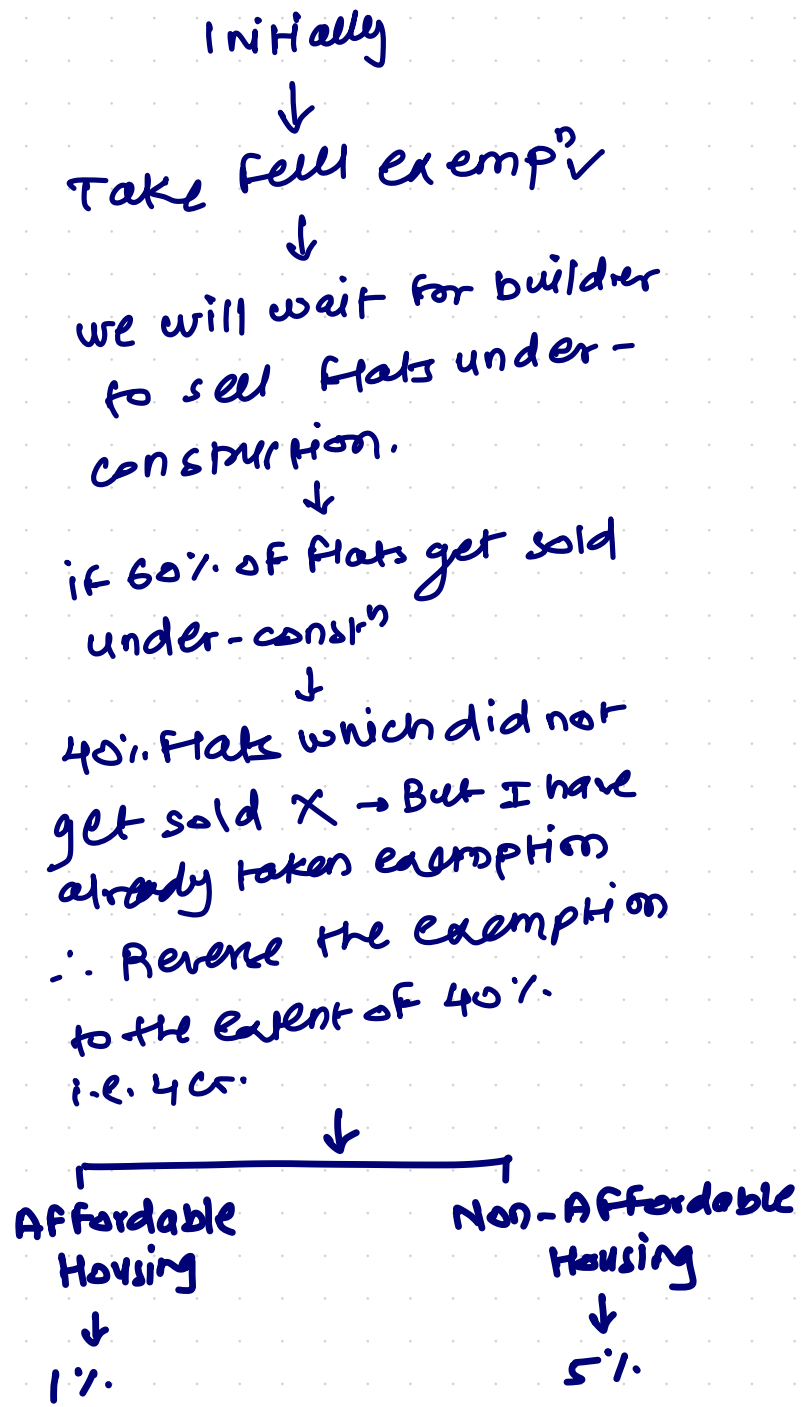 Initially
↓
Take full exempⁿ ✓
↓
we will wait for builder
to sell flats under-
construction.
↓
if 60% of flats get sold
under-constrⁿ
↓
40% flats which did not
get sold X → But I have
already taken exemption
∴ Reverse the exemption
to the extent of 40%.
i.e. 4 cr.
↓
Affordable Housing
↓
1%.
Non-Affordable Housing
↓
5%.